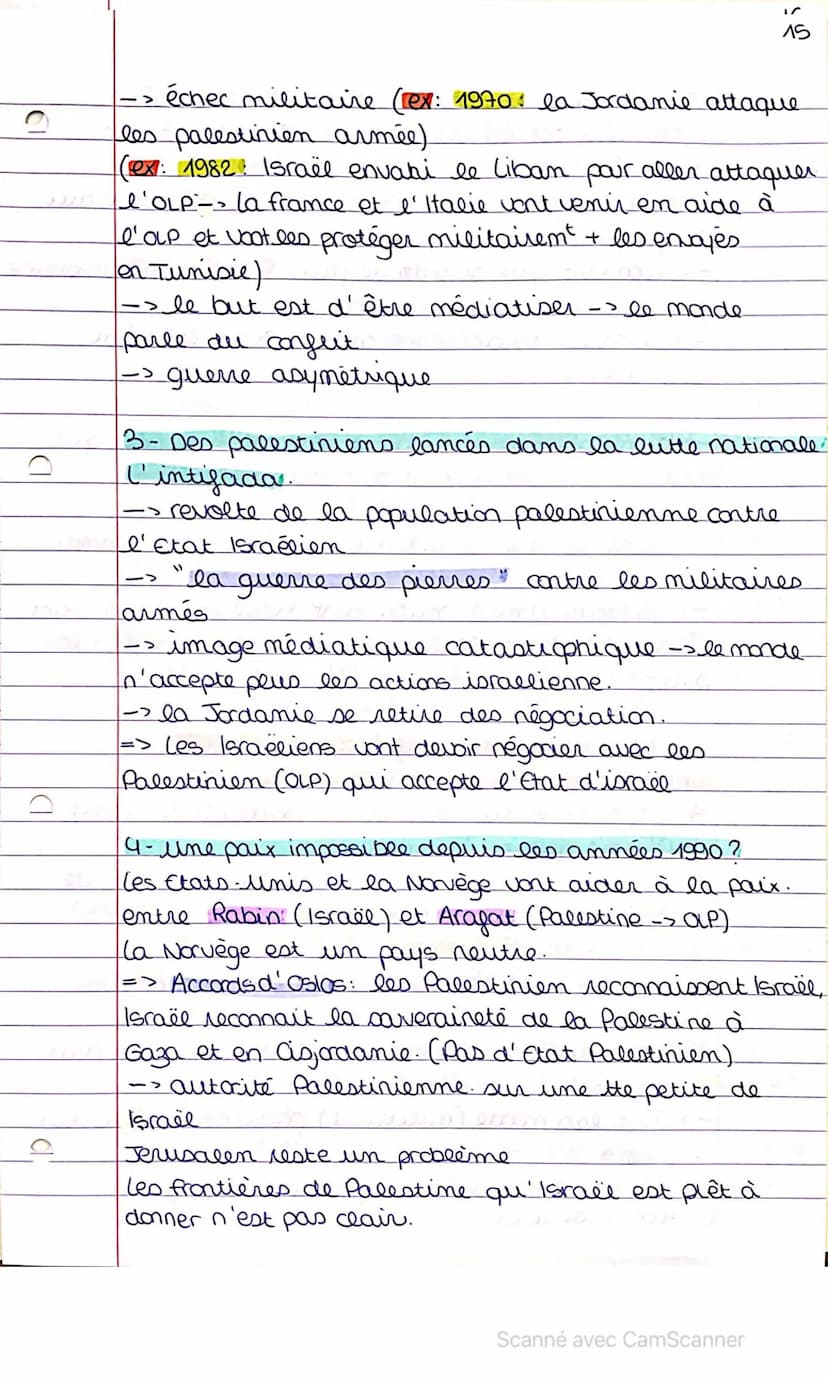 15
-> échec militaire (ex: 1970: la Jordanie attaque
les palestinien armée)
(ex: 1982: Israël envahi le Liban pour aller attaquer
l'OLP -> la france et l'Italie vont venir en aide à
l'OLP et vont les protéger militairemt + les envoyés
en Tunisie)
-> le but est d'être médiatiser -> le monde
parle du conflit
-> guerre asymétrique
3- Des palestiniens lancés dans la lutte nationale:
L'intifada.
-> revolte de la population palestinienne contre
l'Etat Israélien
-> "la guerre des pierres" contre les militaires
armés
-> image médiatique catastrophique -> le monde
n'accepte plus les actions israelienne.
-> la Jordanie se retire des négociation.
=> Les Israëliens vont devoir négocier avec les
Palestinien (OLP) qui accepte l'Etat d'israël
4- Une paix impossible depuis les années 1990?
Les Etats-Unis et la Norvège vont aider à la paix.
entre Rabin (Israël) et Arafat (Palestine -> OLP)
La Norvège est un pays neutre.
=> Accords d'Oslos: les Palestinien reconnaissent Israël,
Israël reconnait la souveraineté de la Palestine à
Gaza et en Cisjordanie. (Pas d'Etat Palestinien)
-> autorité Palestinienne sur une tte petite de
Israël
Jerusalem reste un problème
Les frontières de Palestine qu'Israël est prêt à
donner n'est pas clair.
Scanné avec CamScanner